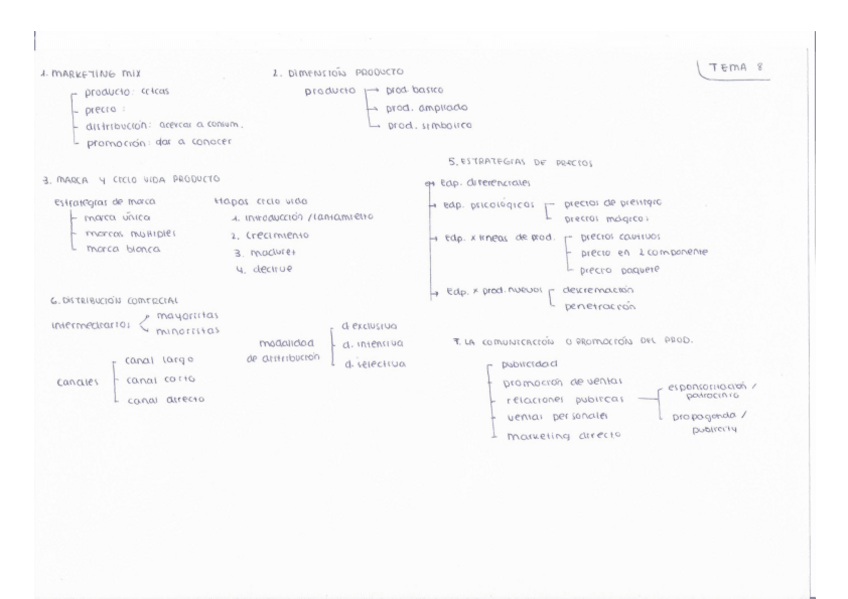 TEMA 8
1. MARKETING MIX
producto: cticas
precio:
distribución: acercar a consum.
promoción: dar a conocer
2. DIMENSIÓN PRODUCTO
producto
prod. básico
prod. ampliado
prod. simbólico
3. MARCA Y CICLO VIDA PRODUCTO
estrategias de marca
marca única
marcas múltiples
marca blanca
etapas ciclo vida
1. introducción / lanzamiento
2. crecimiento
3. madurez
4. declive
5. ESTRATEGIAS DE PRECIOS
edp. diferenciales
edp. psicológicos
precios de prestigio
precios mágicos
edp. x líneas de prod.
precios cautivos
precio en 2 componente
precio paquete
edp. x prod. nuevos
descremación
penetración
6. DISTRIBUCIÓN COMERCIAL
intermediarios
mayoristas
minoristas
canales
canal largo
canal corto
canal directo
modalidad
de distribución
d. exclusiva
d. intensiva
d. selectiva
7. LA COMUNICACIÓN O PROMOCIÓN DEL PROD.
publicidad
promoción de ventas
relaciones públicas
esponsorización /
patrocinio
propaganda /
publicity
ventas personales
marketing directo